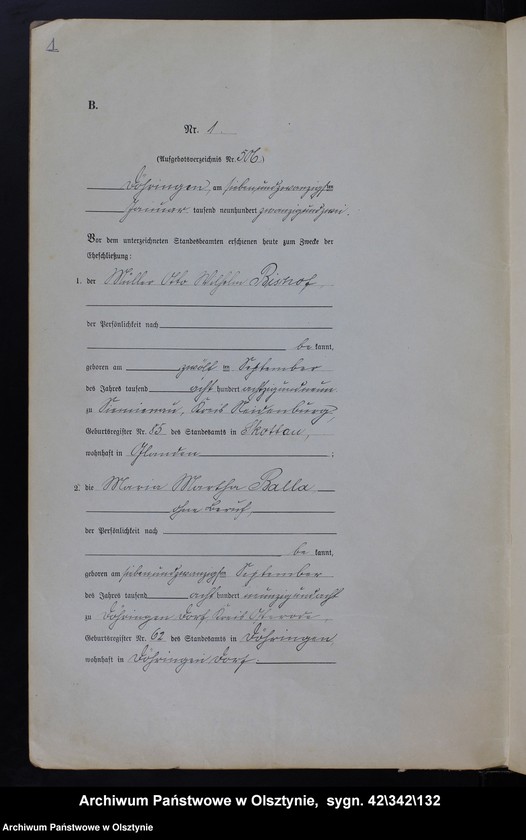 1
B.
Nr. 1
(Aufgebotsverzeichnis Nr. 506.)
Döhringen, am siebenundzwanzigsten
Januar tausend neunhundert zwanzigundzwei.
Vor dem unterzeichneten Standesbeamten erschienen heute zum Zwecke der
Eheschließung:
1. der Müller Otto Wilhelm Bischof,
der Persönlichkeit nach
be kannt,
geboren am zwölf ten September
des Jahres tausend acht hundert achtzigundneun
zu Kreis Neidenburg,
Geburtsregister Nr. 85 des Standesamts in Skottau,
wohnhaft in Glanden ;
2. die Maria Martha Balla
ohne Beruf,
der Persönlichkeit nach
be kannt,
geboren am siebenundzwanzigsten September
des Jahres tausend acht hundert neunzigundacht
zu Döhringen Dorf Kreis Osterode,
Geburtsregister Nr. 62 des Standesamts in Döhringen
wohnhaft in Döhringen Dorf.
Archiwum Państwowe w Olsztynie, sygn. 42\342\132
Archiwum Państwowe w Olsztynie